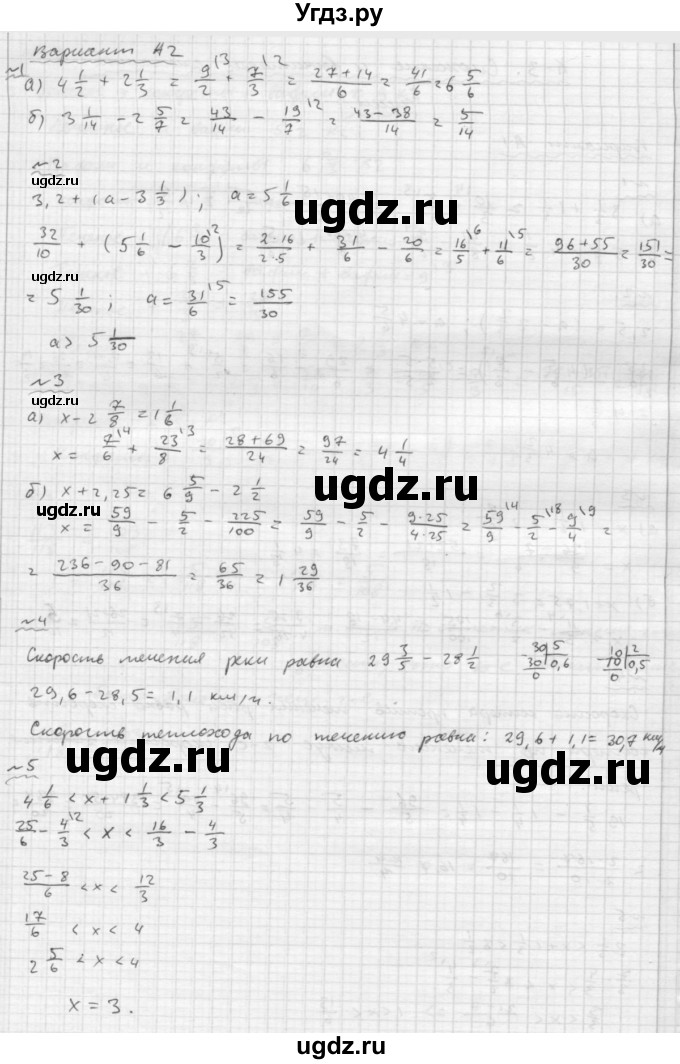 Угдз.ру
Вариант А2
№1
а) 4 1/2 + 2 1/3 = 9/2 \3 + 7/3 \2 = (27+14)/6 = 41/6 = 6 5/6
б) 3 1/14 - 2 5/7 = 43/14 - 19/7 \2 = (43-38)/14 = 5/14
№2
ugdz.ru
3,2 + (a - 3 1/3); a = 5 1/6
ugdz.ru
32/10 + (5 1/6 - 10/3 \2) = (2·16)/(2·5) + 31/6 - 20/6 = 16/5 \6 + 11/6 \5 = (96+55)/30 = 151/30 =
ugdz.ru
ugdz.ru
= 5 1/30; a = 31/6 \5 = 155/30
a > 5 1/30
ugdz.ru
№3
а) x - 2 7/8 = 1 1/6
x = 7/6 \4 + 23/8 \3 = (28+69)/24 = 97/24 = 4 1/4
ugdz.ru
б) x + 2,25 = 6 5/9 - 2 1/2
ugdz.ru
x = 59/9 - 5/2 - 225/100 = 59/9 - 5/2 - (9·25)/(4·25) = 59/9 \4 - 5/2 \18 - 9/4 \9 =
= (236-90-81)/36 = 65/36 = 1 29/36
ugdz.ru
№4
Скорость течения реки равна 29 3/5 - 28 1/2 30 5 30 0,6 0 10 2 10 0,5 0
29,6 - 28,5 = 1,1 км/ч.
Скорость теплохода по течению равна: 29,6 + 1,1 = 30,7 км/ч
ugdz.ru
ugdz.ru
№5
ugdz.ru
4 1/6 < x + 1 1/3 < 5 1/3
25/6 - 4/3 \2 < x < 16/3 - 4/3
(25-8)/6 < x < 12/3
17/6 < x < 4
2 5/6 < x < 4
ugdz.ru
x = 3.
ugdz.ru